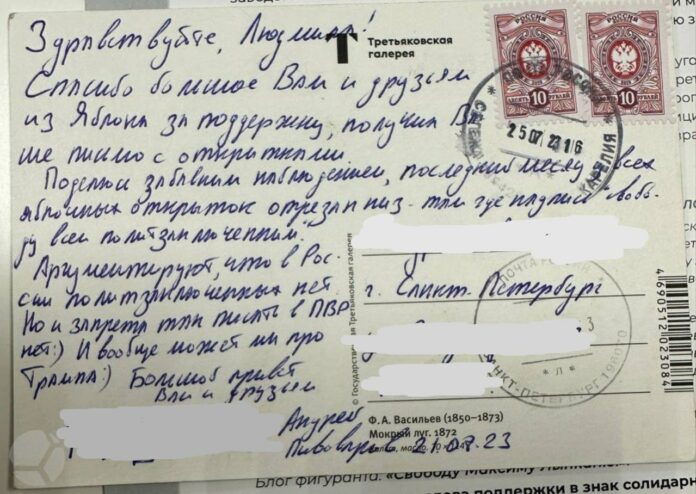 Здравствуйте, Людмила!
Спасибо большое Вам и друзьям
из Яблока за поддержку, получил Ва
ше письмо с открытками.
Поделюсь забавным наблюдением, последний месяц у всех
яблочных открыток отрезан низ - там где надпись "Свобо
ду всем политзаключенным".
Аргументируют, что в Рос-
сии политзаключенных нет
Но и запрета там писать в ПВР
нет:) И вообще может мы про
Трампа:) Большой привет
Вам и друзьям
Андрей
21.07.23
Третьяковская
галерея
РОССИЯ
ДЕСЯТЬ РУБЛЕЙ 10
РОССИЯ
10 РУБЛЕЙ
25 07 23 16
КАРЕЛИЯ
г. Санкт-Петербург
ПОЧТА
САНКТ-ПЕТЕРБУРГ
*Л*
3
© Государственная Третьяковская галерея
Ф. А. Васильев (1850–1873)
Мокрый луг. 1872
4690512023084
Блог фигуранта. «Свободу Максиму
поддержки в знак солидар